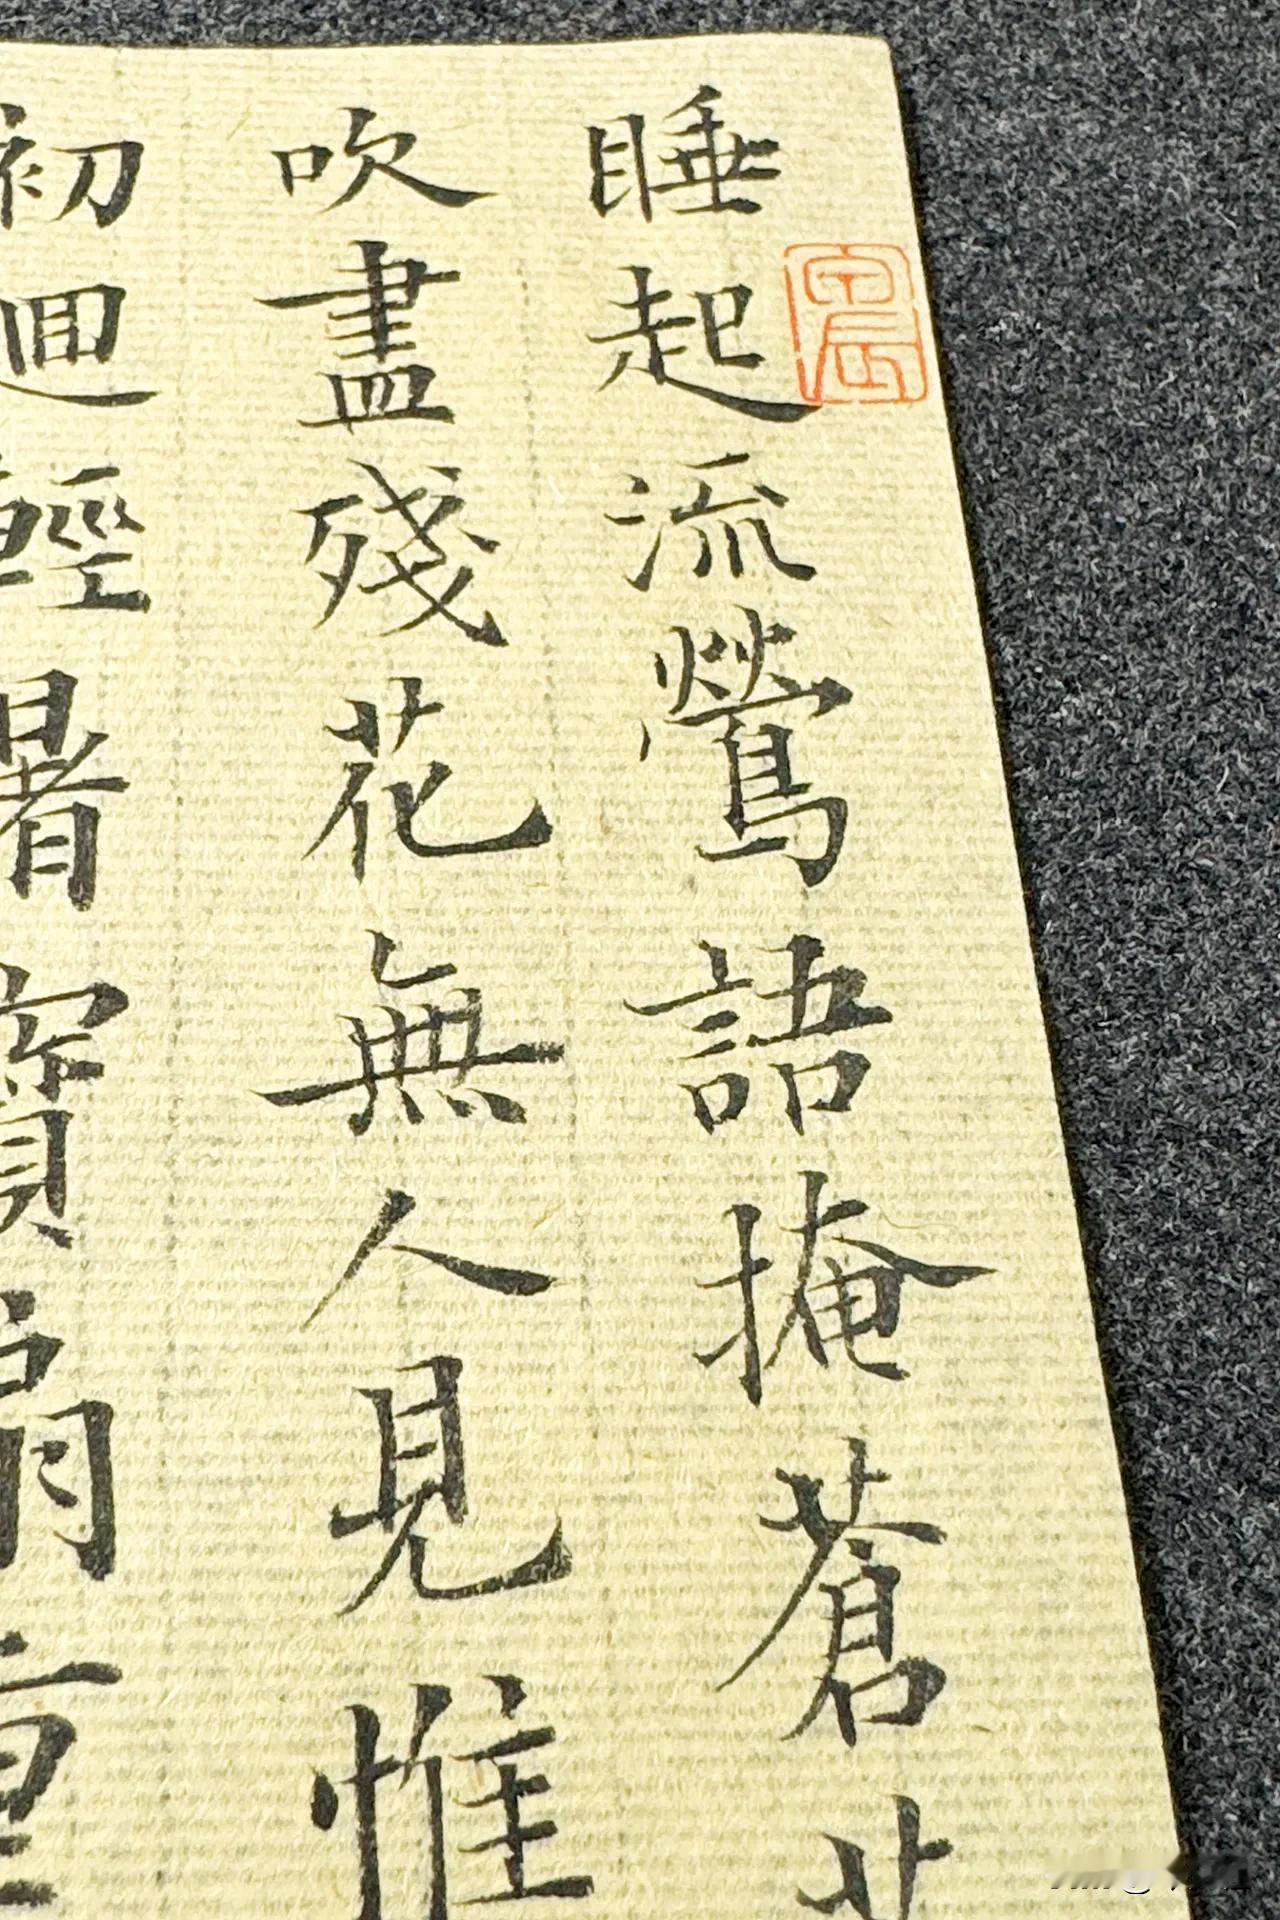 睡起流鶯語掩蒼
吹盡殘花無人見惟
初迴輕暑寳扇重